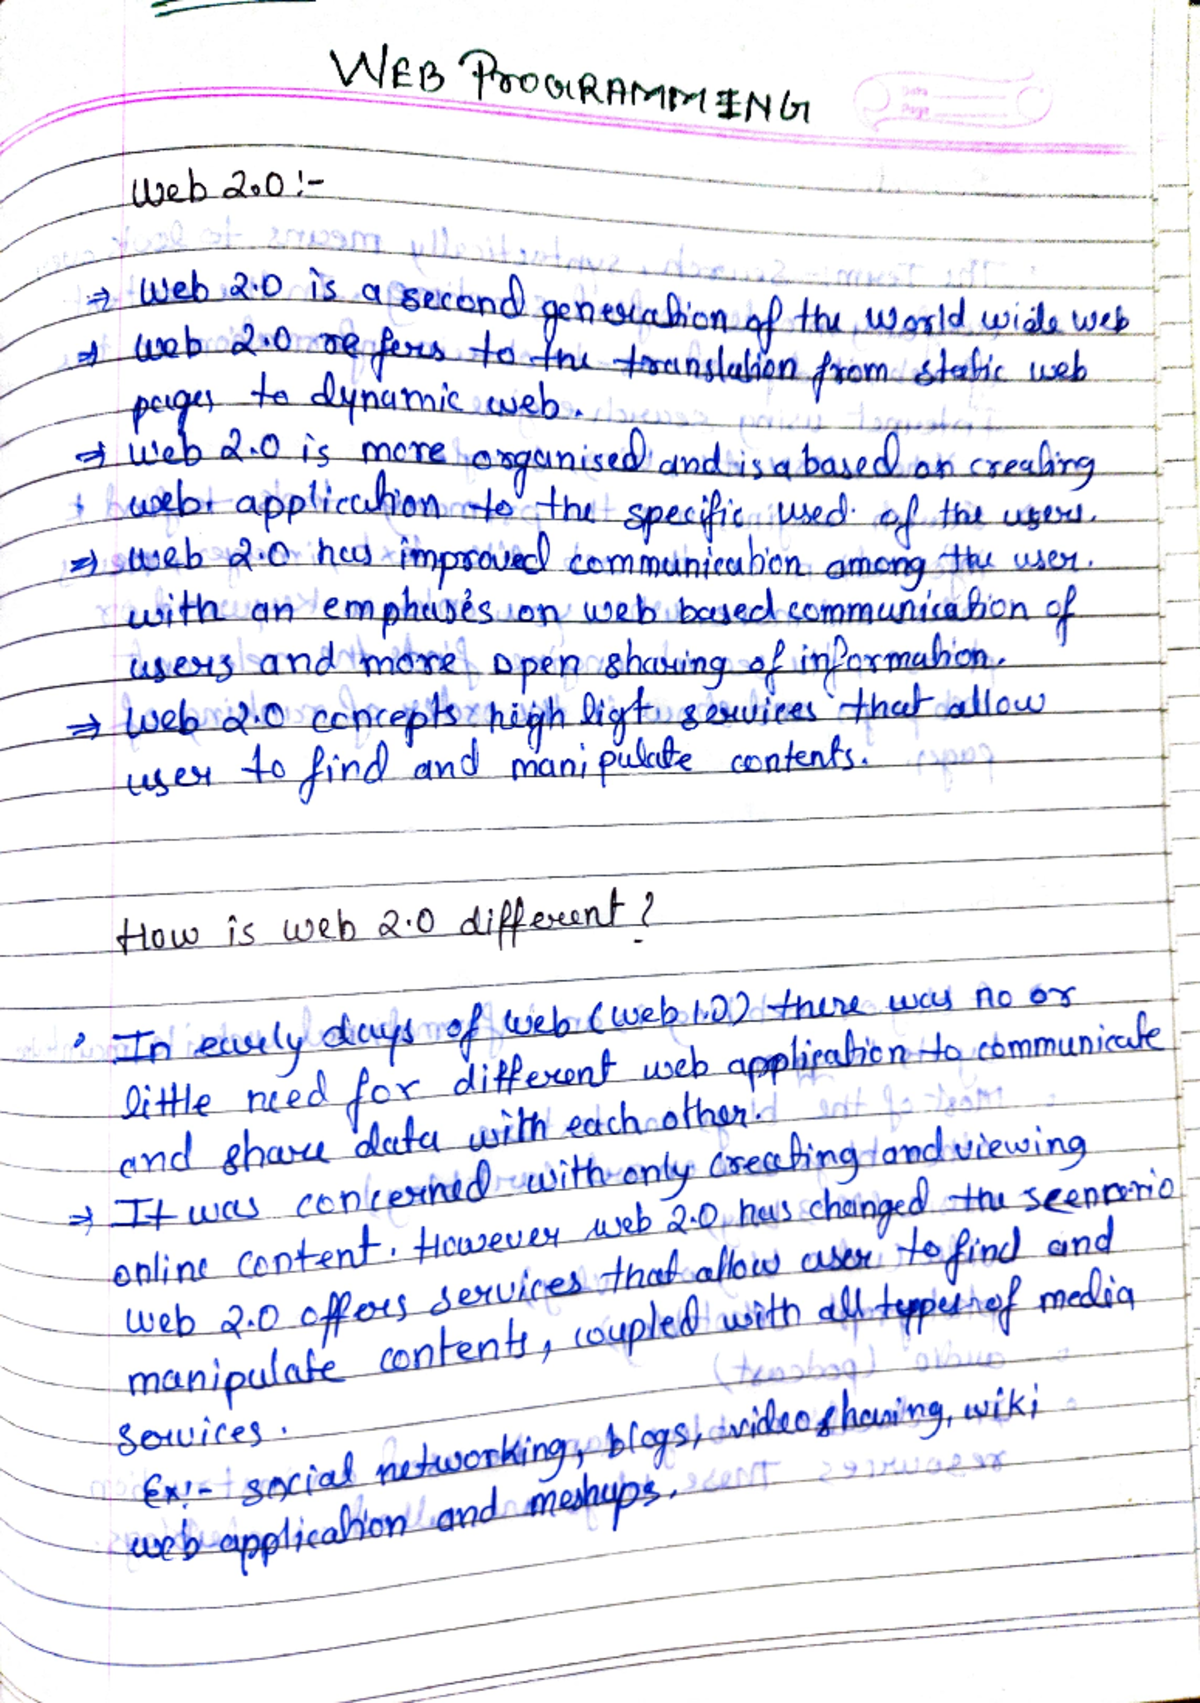 WEB PROGRAMMING
Date
Page
Web 2.0:-
⇒ Web 2.0 is a second generation of the world wide web
⇒ Web 2.0 refers to the translation from static web
pages to dynamic web.
⇒ Web 2.0 is more organised and is a based on creating
web application to the specific used of the users.
⇒ Web 2.0 has improved communication among the user.
with an emphasés on web based communication of
users and more open sharing of information.
⇒ Web 2.0 concepts high ligt services that allow
user to find and manipulate contents.
How is web 2.0 different?
In early days of web (web 1.0) there was no or
little need for different web application to communicate
and share data with each other.
⇒ It was concerned with only creating and viewing
online content. However web 2.0 has changed the scenrario
web 2.0 offers services that allow user to find and
manipulate contents, coupled with all types of media
services.
Ex:- social networking, blogs, video sharing, wiki
web application and meshups.